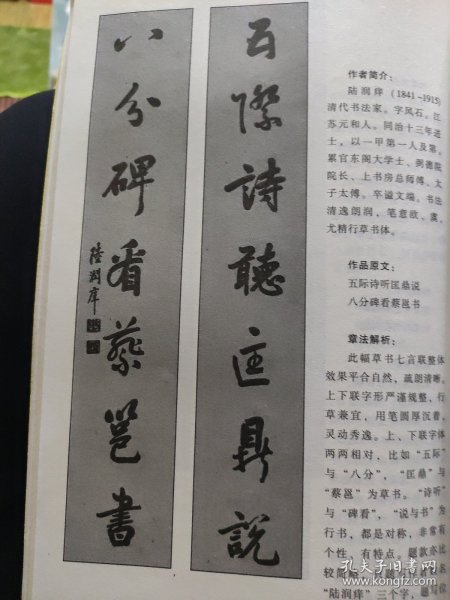 五際詩聽匡鼎說
八分碑看蔡邕書
陸潤庠
作者简介：
陆润庠（1841-1915）
清代书法家。字凤石。江
苏元和人。同治十三年进
士，以一甲第一人及第。
累官东阁大学士、弼德院
院长、上书房总师傅、太
子太傅。卒谥文端。书法
清逸朗润，笔意欧、虞，
尤精行草书体。
作品原文：
五际诗听匡鼎说
八分碑看蔡邕书
章法解析：
此幅草书七言联整体
效果平合自然，疏朗清晰。
上下联字形严谨规整，行
草兼宜，用笔圆厚沉着，
灵动秀逸。上、下联字体
两两相对，比如“五际”
与“八分”，“匡鼎”与
“蔡邕”为草书。“诗听”
与“碑看”，“说与书”为
行书，都是对称，非常有
个性，有特点。题款亦比
较简
“陆润庠”三个字，题写位
孔夫子旧书网